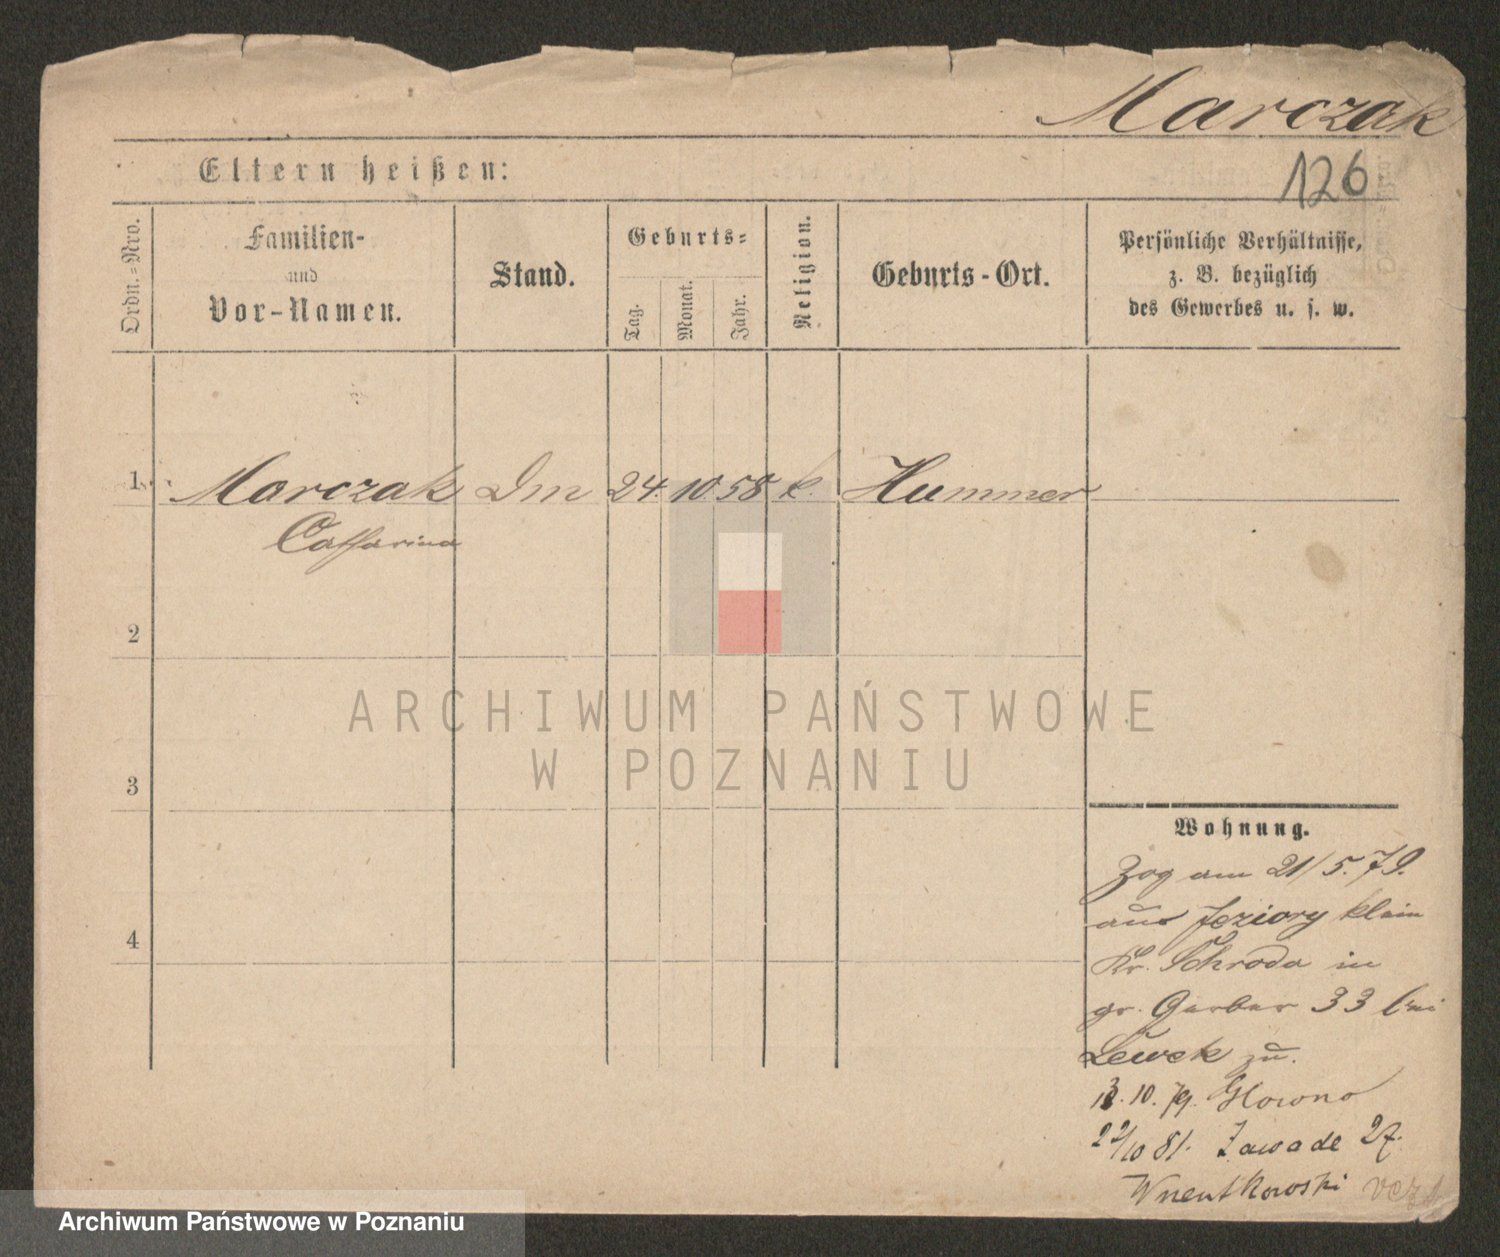 Marczak
126
Eltern heißen:
Ordn.=Nro.
Familien-
und
Vor-Namen.
Stand.
Geburts=
Tag.
Monat.
Jahr.
Religion.
Geburts-Ort.
Persönliche Verhältnisse,
z. B. bezüglich
des Gewerbes u. s. w.
1 Marczak Dm 24. 10 58 k. Hummer
Catharina
2
3
4
ARCHIWUM PAŃSTWOWE
W POZNANIU
Wohnung.
Zog am 21/5.79.
aus Jeziory klein
Kr. Schroda in
gr. Gerber 33 bei
Lewek zu.
10. 79. Glowno
22/10 81. Zawade 27.
Wnentkowski
Archiwum Państwowe w Poznaniu